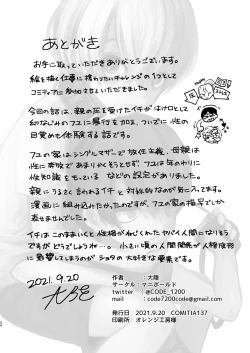 あとがき
お手に取っていただきありがとうございます。
絵を描く仕事に携わりたいチャレンジの1つとして
コミティアに参加させていただきました。
今回の話は、親の圧を受けたイチがはけ口として
幼なじみのフユに暴行を加え、ついでに性の
目覚めも体験する話です。
フユの家はシングルマザーで放任主義、母親は
性に奔放であまりやくもうとせず、フユは年のわりに
性知識をもっている などの設定がありました。
親にうるさく言われるイチと対称的なのが気に入ってます。
漫画に組み込みたかったのですが、フユの家の描写でしか
表せませんでした。
イチはこのままいくと性格がねじくれたヤバイ人間になりそう
ですがどうでしょうねー。小さい頃の人間関係が人格形成
に影響してしまうのがショタの大好きな要素です。
圧
2021.9.20
作者 ：大陸
サークル：マニボールド
twitter ：@CODE_1200
mail ：code7200code@gmail.com
発行日 2021.9.20 COMITIA137
印刷所 オレンジ工房様